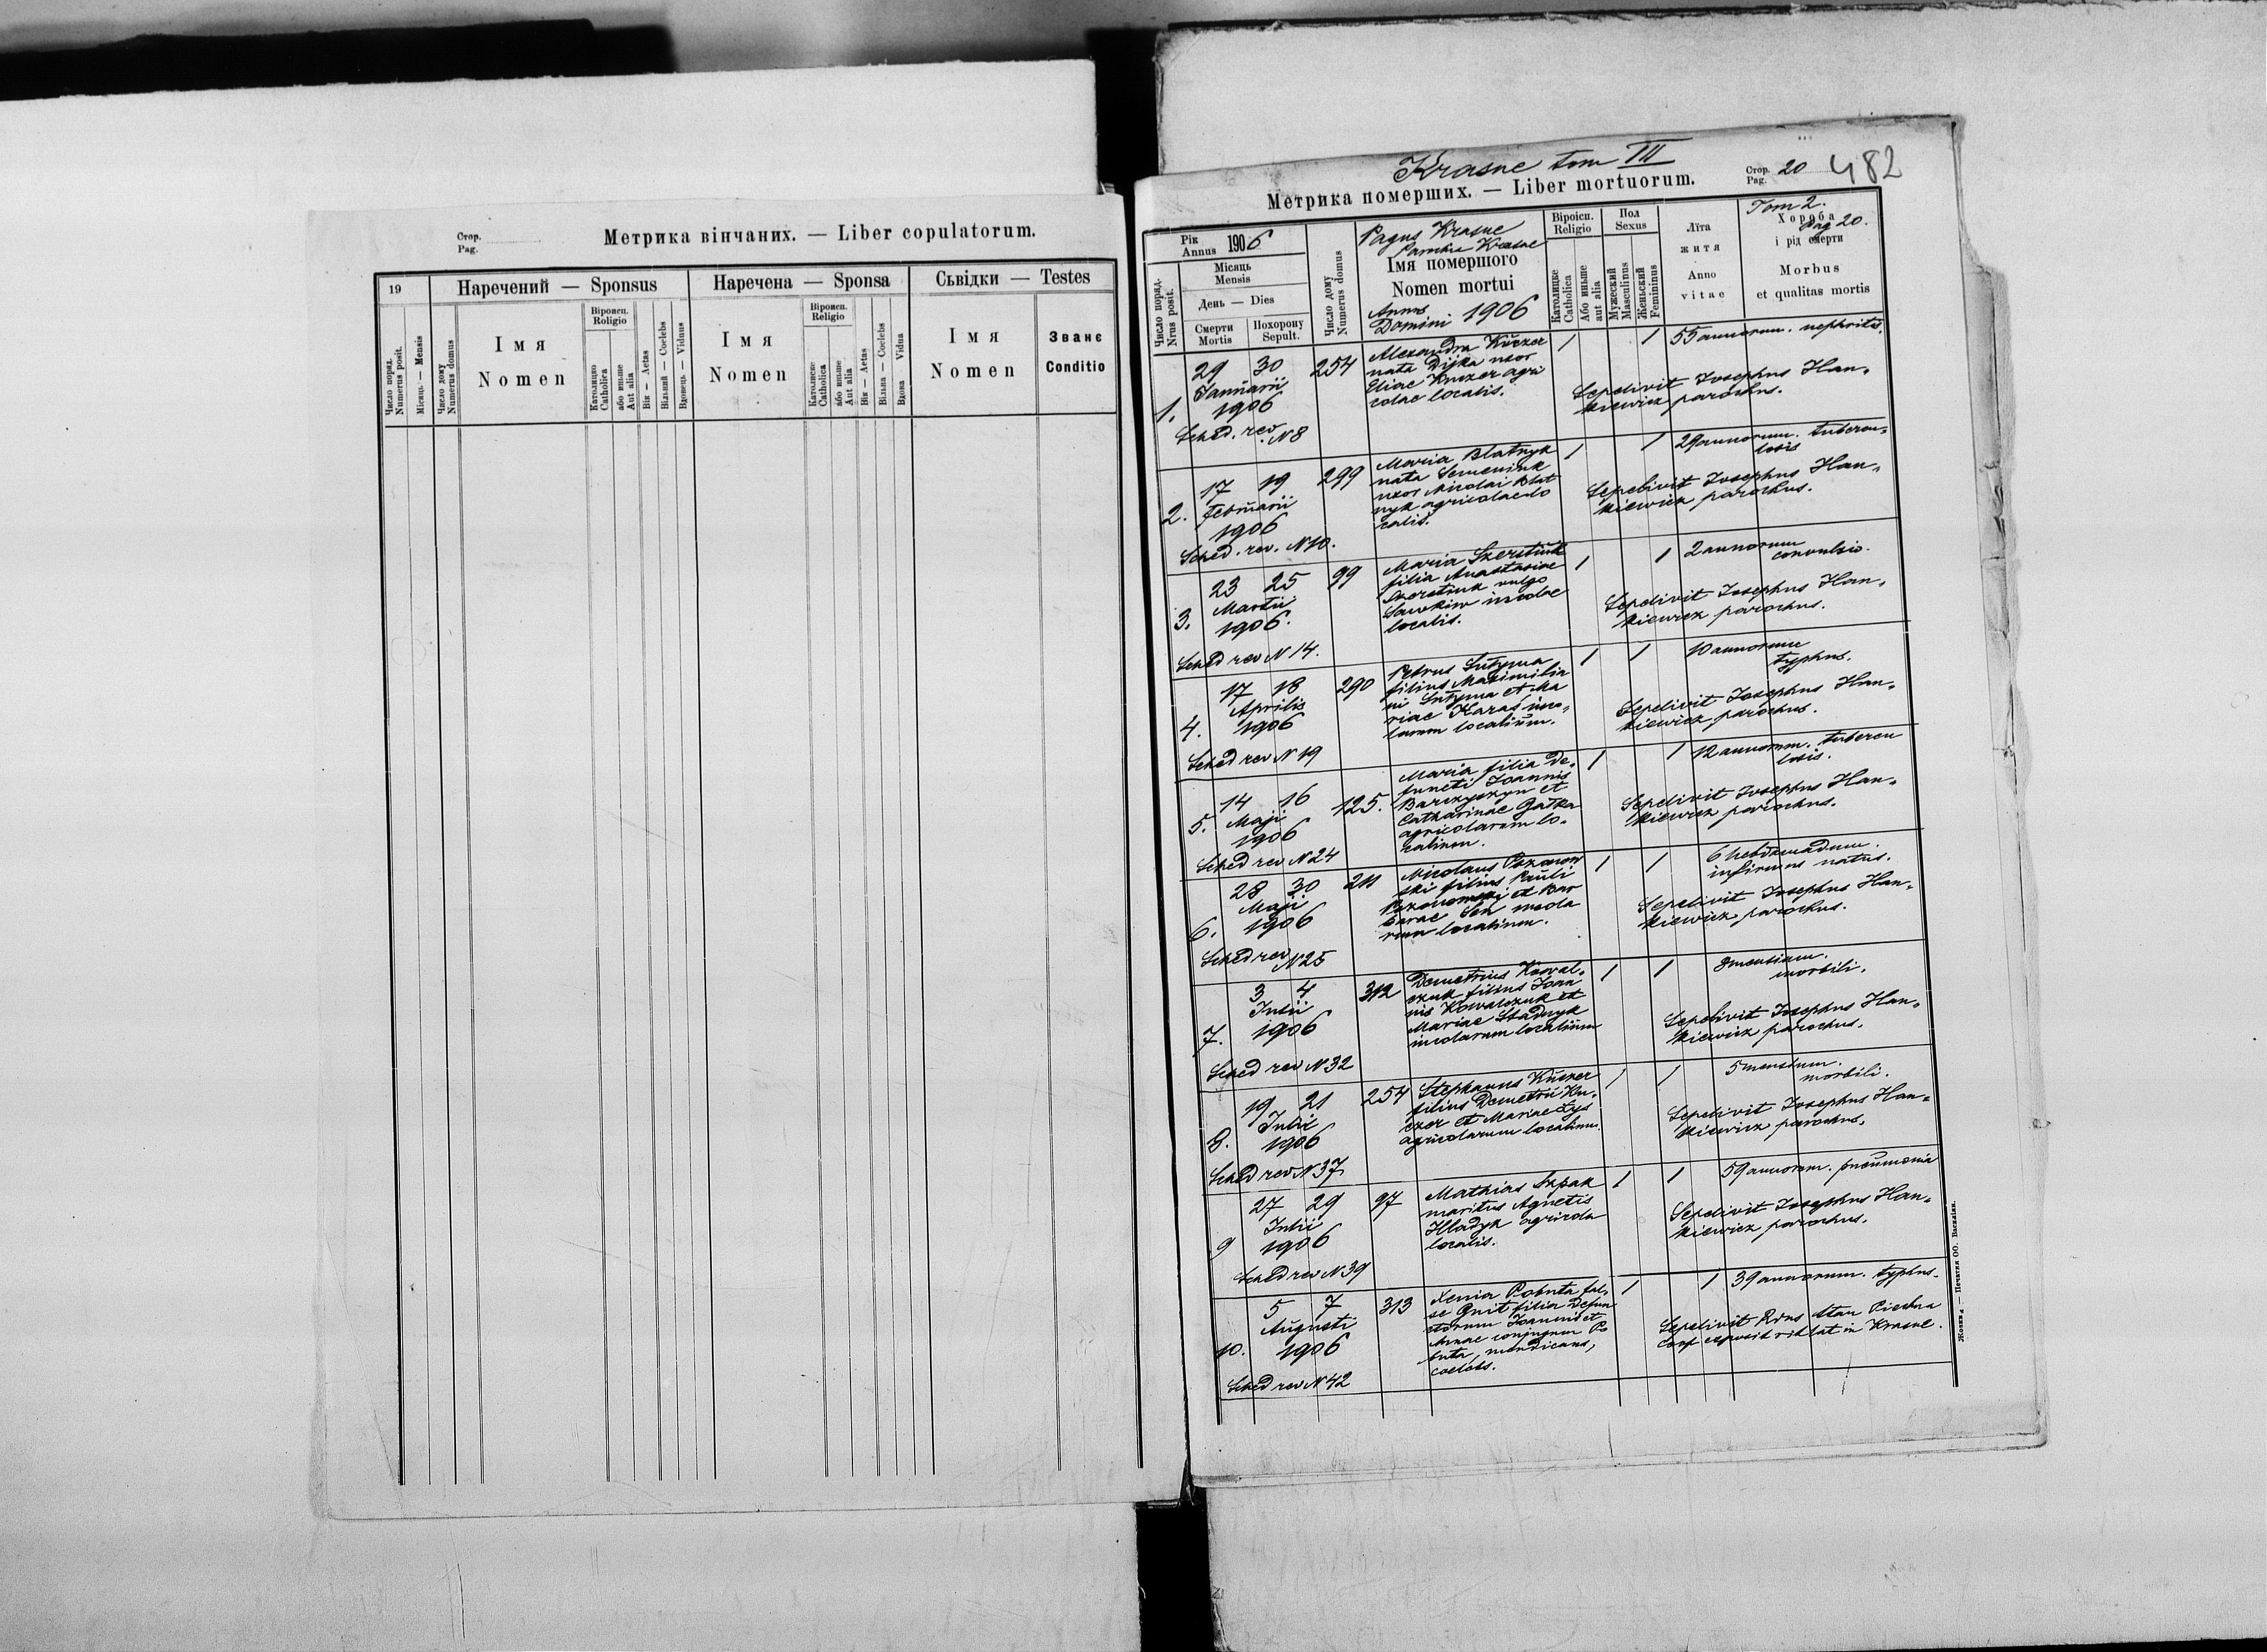 Стор.
Pag.
Метрика вінчаних. — Liber copulatorum.
19
Наречений — Sponsus
Наречена — Sponsa
Сьвідки — Testes
Число поряд.
Numerus posit.
Місяць — Mensis
Число дому
Numerus domus
Імя
Nomen
Віроісп.
Religio
Католицке
Catholica
або иньше
Aut alia
Вік — Aetas
Вільний — Coelebs
Вдовець — Viduus
Імя
Nomen
Віроісп.
Religio
Католицке
Catholica
або иньше
Aut alia
Вік — Aetas
Вільна — Coelebs
Вдова Vidua
Імя
Nomen
Званє
Conditio
Krasne tom III
Метрика померших. — Liber mortuorum.
Стор.
Pag. 20
482
Рік
Annus 1906
Число поряд.
Nrus posit.
Місяць
Mensis
День — Dies
Смерти
Mortis
Похорону
Sepult.
Число дому
Numerus domus
Pagus Krasne
Parochia Krasne
Імя помершого
Nomen mortui
Annus
Domini 1906
Віроісп.
Religio
Католицке
Catholica
Або иньше
aut alia
Пол
Sexus
Мужеский
Masculinus
Женьский
Femininus
Лїта
житя
Anno
vitae
Tom 2.
Хороба
Pag 20.
і рід смерти
Morbus
et qualitas mortis
1. 29 30
Januarii
1906
Sched. rev. N 8
254
Alexandra Kuczer
nata Dijka uxor
Eliae Kuczer agri
colae localis.
1 1 55 annorum. nephritis.
Sepelivit Josephus Han-
kiewicz parochus.
2. 17 19
Februarii
1906
Sched. rev. N 10.
299
Maria Blatnyk
nata Semeniuk
uxor Nicolai Blat
nyk agricolae lo
calis.
1 1 29 annorum. tubercu-
losis
Sepelivit Josephus Han-
kiewicz parochus.
3. 23 25
Martii
1906.
Sched rev N 14.
99
Maria Szerstiuk
filia Anastasiae
Szerstiuk vulgo
Sawkiw incolae
localis.
1 1 2 annorum
convulsio.
Sepelivit Josephus Han-
kiewicz parochus.
4. 17 18
Aprilis
1906
Sched rev N 19
290
Petrus Sutyma
filius Maximilia
ni Sutyma et Ma
riae Karaś inco-
larum localium.
1 1 10 annorum
typhus.
Sepelivit Josephus Han-
kiewicz parochus.
5. 14 16
Maji
1906
Sched rev N 24
125.
Maria filia De-
functi Joannis
Barczyszyn et
Catharinae Gatka
agricolarum lo-
calium.
1 1 12 annorum. tubercu
losis.
Sepelivit Josephus Han-
kiewicz parochus.
6. 28 30
Maji
1906
Sched rev N 25
211
Nicolaus
ski filius Pauli
et Bar
barae Seń incola
rum localium.
1 1 6 hebdomadum.
infirmus natus.
Sepelivit Josephus Han-
kiewicz parochus.
7. 3 4
Julii
1906
Sched rev N 32
312
Demetrius Kowal-
czuk filius Joan
nis Kowalczuk et
Mariae Stadnyk
incolarum localium
1 1 8 mensium.
morbili.
Sepelivit Josephus Han-
kiewicz parochus.
8. 19 21
Julii
1906
Sched rev N 37
254
Stephanus Kuczer
filius Demetrii Ku-
czer et Mariae Łys
agricolarum localium.
1 1 5 mensium.
morbili.
Sepelivit Josephus Han-
kiewicz parochus.
9 27 29
Julii
1906
Sched rev N 39
97
Mathias Szpak
maritus Agnetis
Hladyk agricola
localis.
1 1 59 annorum. pneumonia
Sepelivit Josephus Han-
kiewicz parochus.
10. 5 7
Augusti
1906
Sched rev N 42
313
Xenia Pobuta fal-
se Gnit filia Defun
ctorum Joannis et
Annae conjugum Po
buta, mendicans,
coelebs.
1 1 39 annorum. typhus.
Sepelivit Rdus Stan
exposit rit lat in Krasne.
Жовква — Печатня ОО. Василіян.